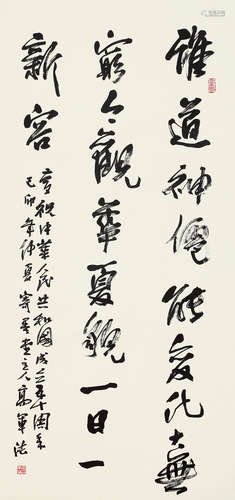 谁道神僊能变化无
穷今观华夏貌一日一
新容
庆祝中华人民共和国成立五十周年
己卯年仲夏 寄吾堂主人高军法